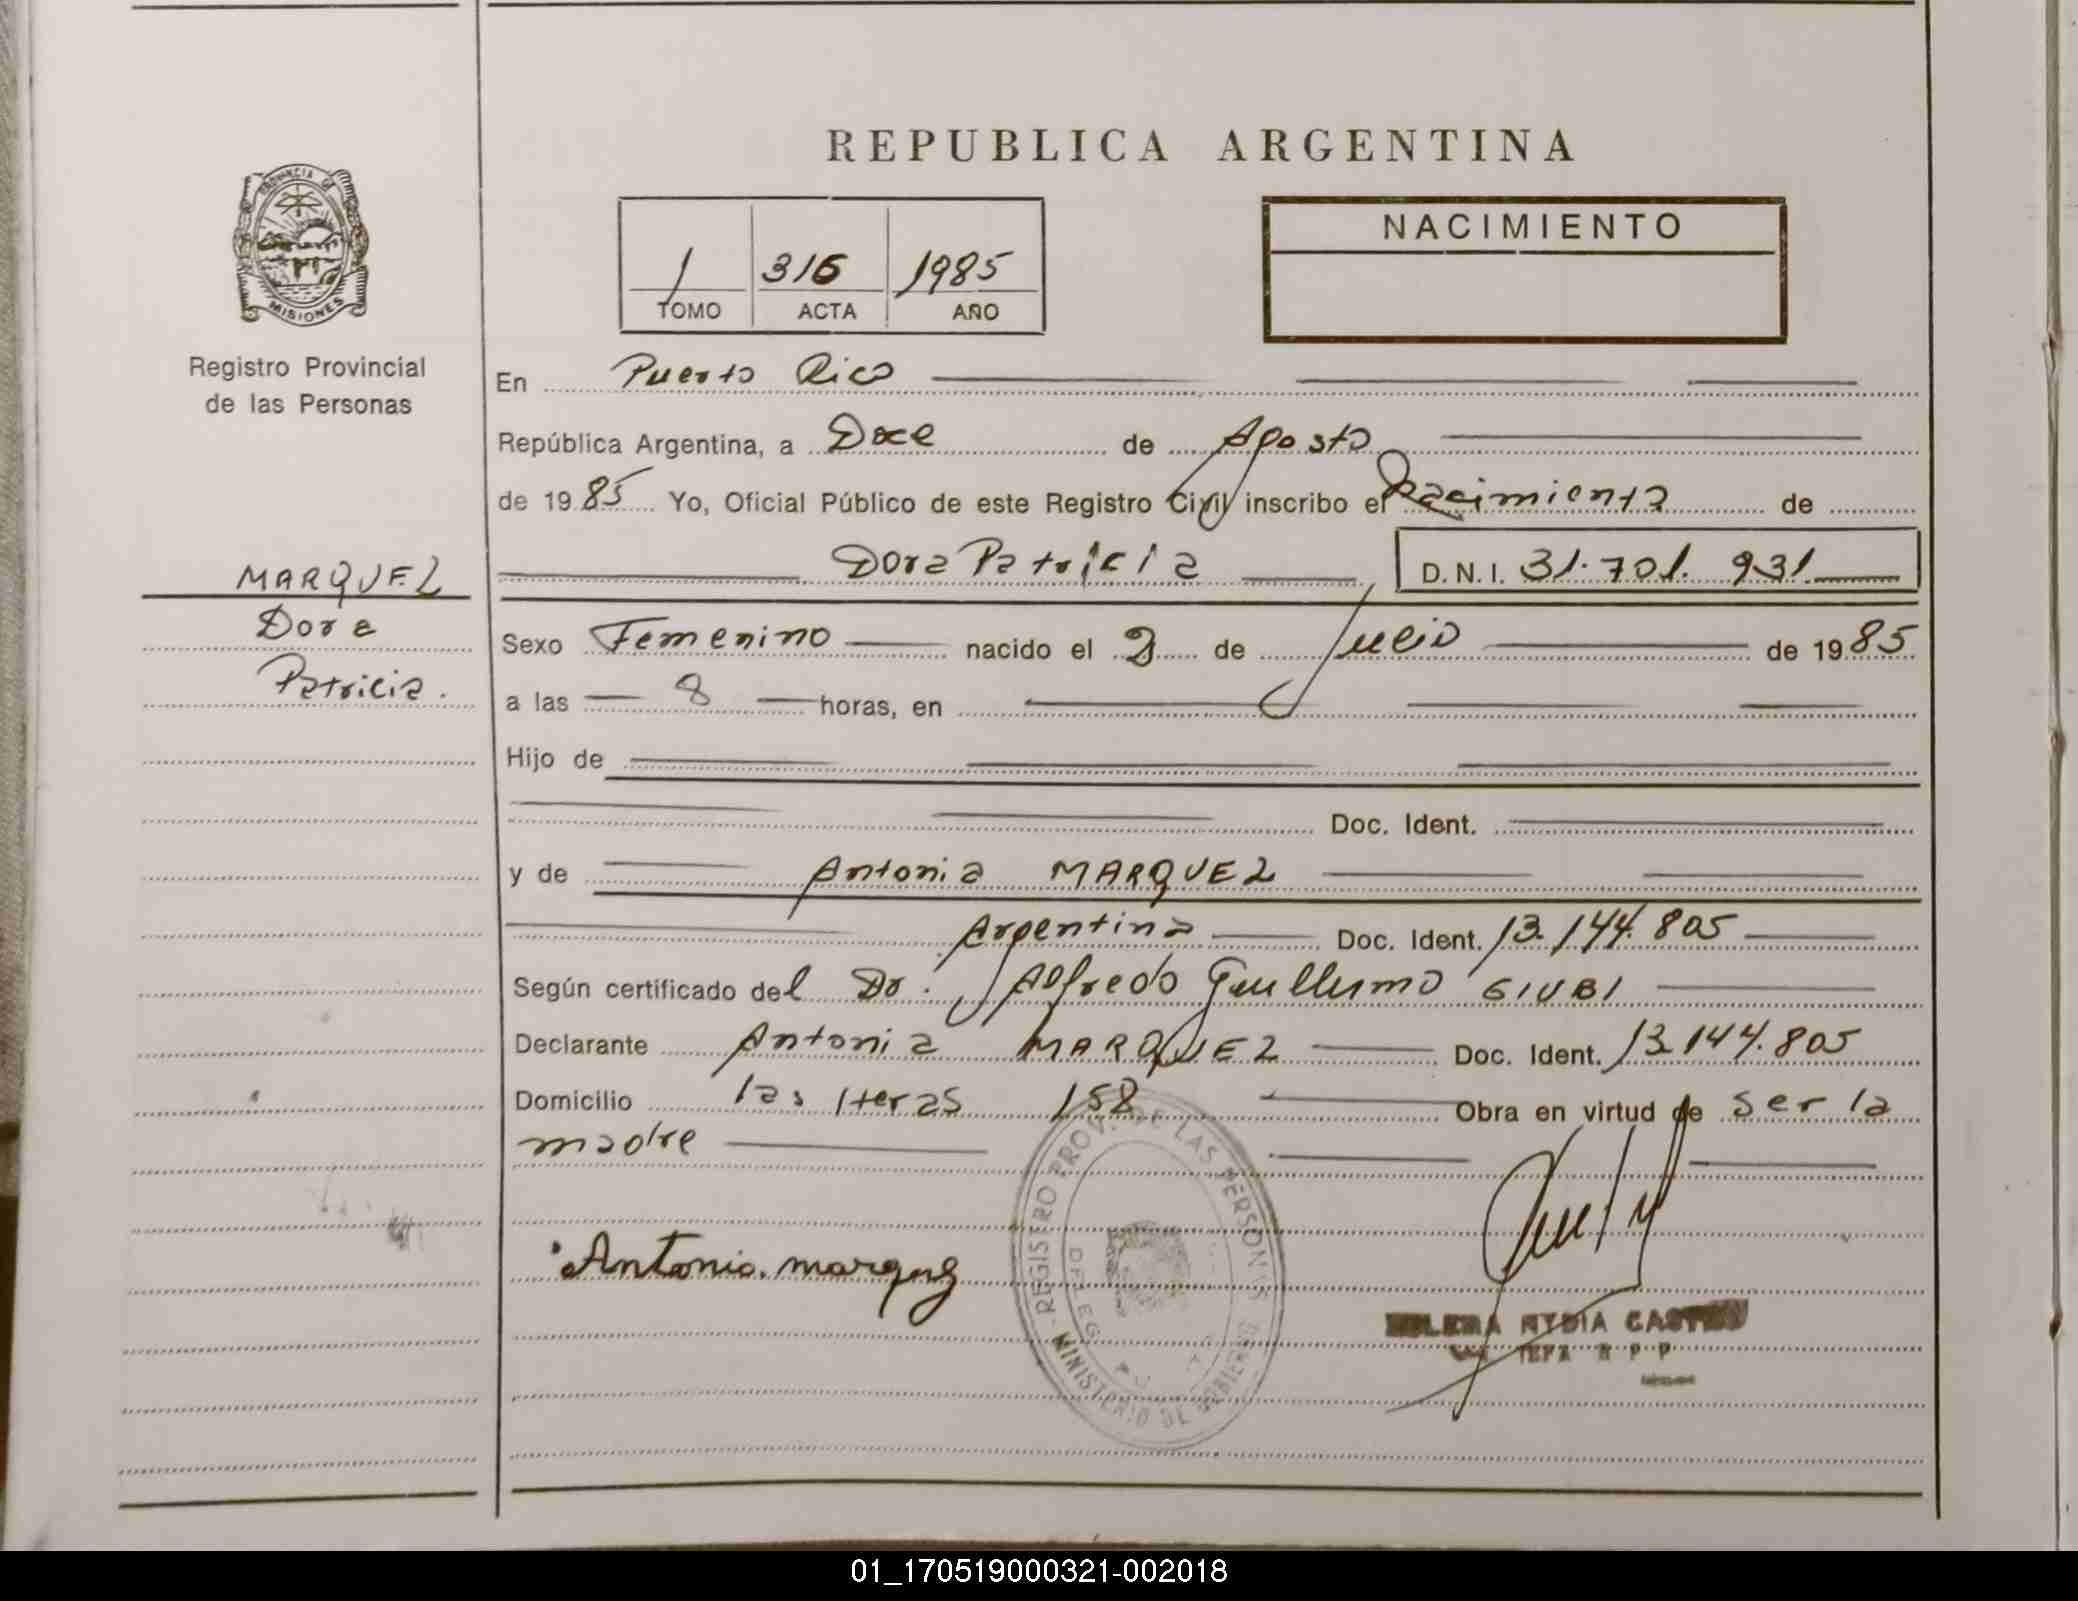 REPUBLICA ARGENTINA
PROVINCIA DE
MISIONES
Registro Provincial
de las Personas
1 316 1985
TOMO ACTA AÑO
NACIMIENTO
En Puerto Rico
República Argentina, a Doce de Agosto
de 1985 Yo, Oficial Público de este Registro Civil inscribo el Nacimiento de
Dora Patricia D.N.I. 31.701.931
MARQUEZ
Dora
Patricia.
Sexo Femenino nacido el 2 de Julio de 1985
a las 8 horas, en
Hijo de
Doc. Ident.
y de Antonia MARQUEZ
Argentina Doc. Ident. 13.144.805
Según certificado del Dr. Alfredo Guillermo GIUBI
Declarante Antonia MARQUEZ Doc. Ident. 13.144.805
Domicilio 158 Obra en virtud de ser la
madre
Antonia marquez
REGISTRO PROV. DE LAS PERSONAS
MINISTERIO DE GOBIERNO
NYDIA
01_170519000321-002018